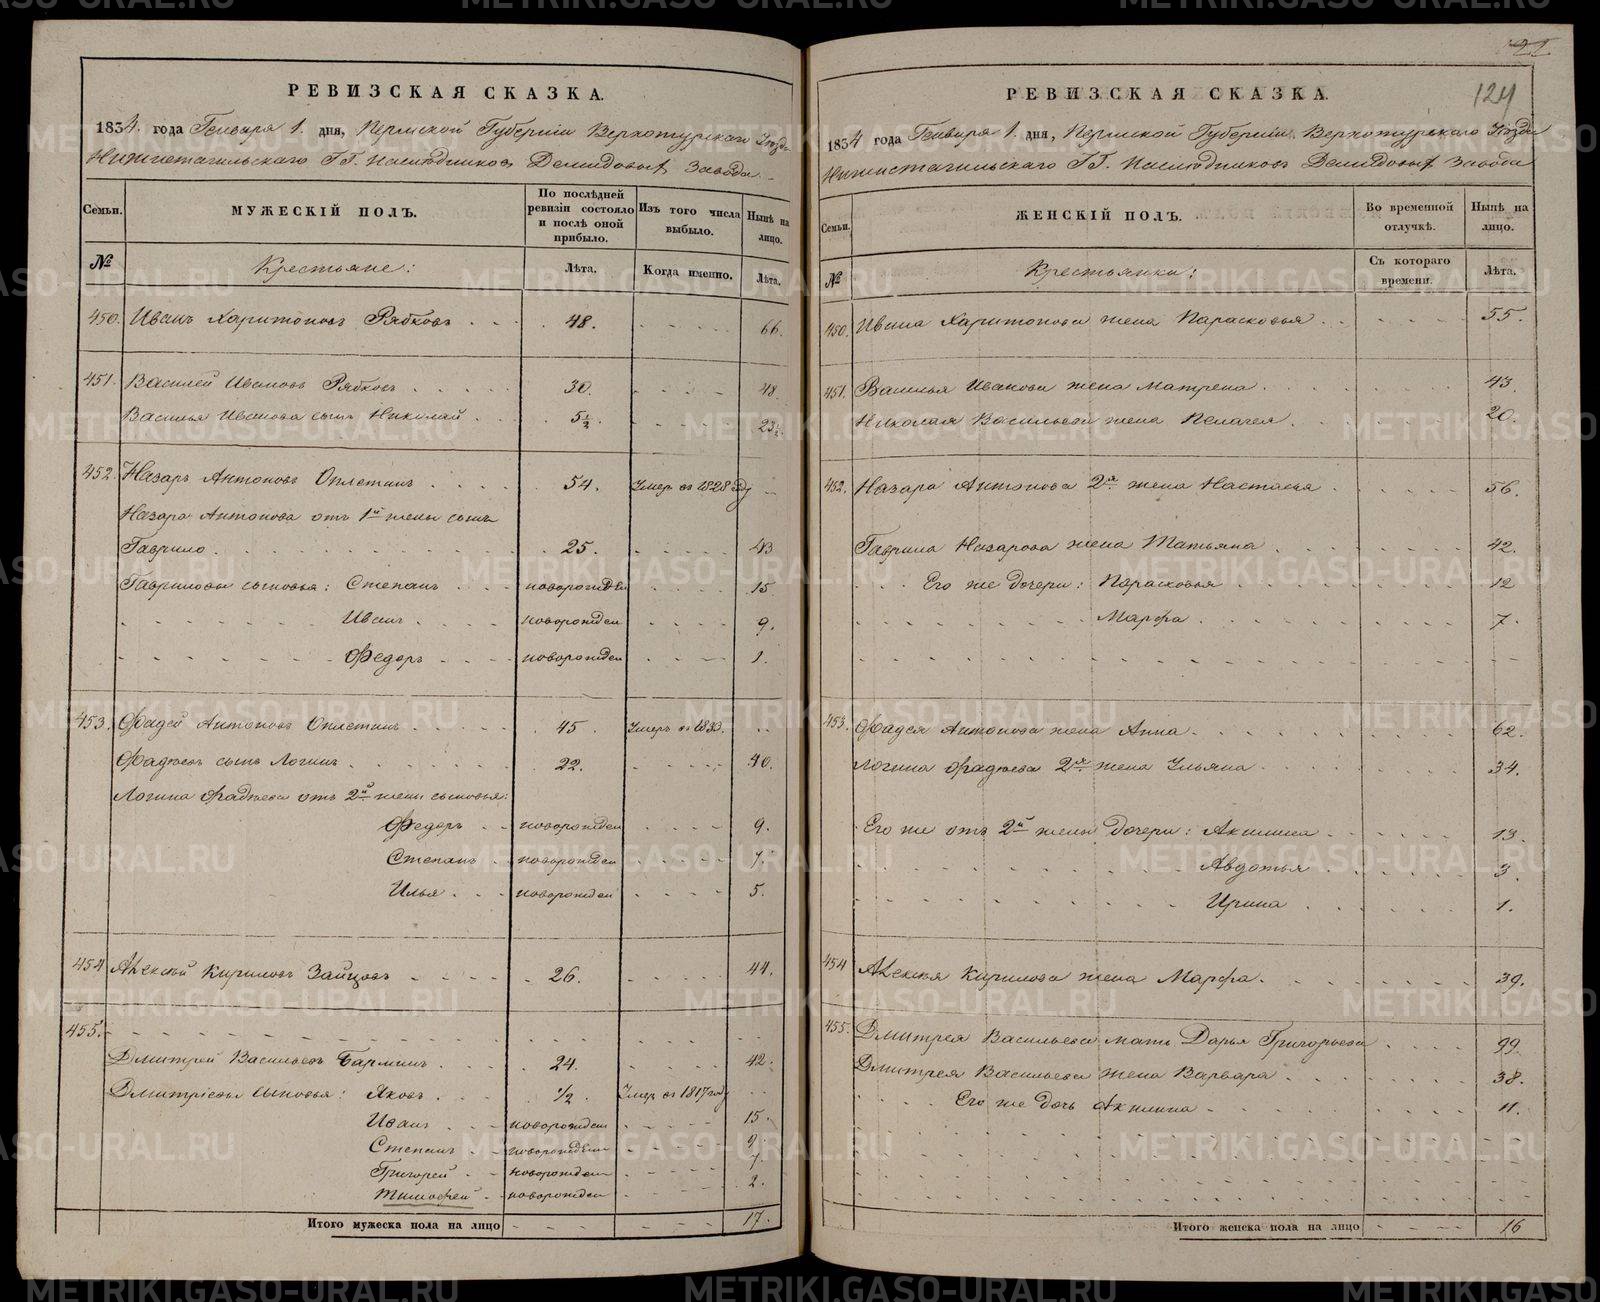 РЕВИЗСКАЯ СКАЗКА.
1834. года Генваря 1. дня, Пермской Губерніи Верхотурскаго Уезда
Нижнетагильскаго ГГ. Наследников Демидовых Завода.
Семьи.
МУЖЕСКІЙ ПОЛЪ.
По послѣдней ревизіи состояло и послѣ оной прибыло.
Изъ того числа выбыло.
Нынѣ на лицо.
№
Крестьяне:
Лѣта.
Когда именно.
Лѣта.
450. Иванъ Харитоновъ Рябковъ 48. 66.
451. Василей Ивановъ Рябковъ 30. 48.
Василья Иванова сынъ Николай 5½. 23½
452. Назаръ Антоновъ Оплетинъ 54. Умеръ въ 1828 году
Назара Антонова отъ 1й жены сынъ
Гаврило 25. 43
Гавриловы сыновья: Степанъ новорожден 15
Иванъ новорожден 9.
Федоръ новорожден 1.
453. Фадей Антоновъ Оплетинъ 45. Умеръ въ 1833.
Фадѣевъ сынъ Логинъ 22. 40.
Логина Фадѣева отъ 2й жены сыновья:
Федоръ новорожден 9.
Степанъ новорожден 7.
Илья новорожден 5.
454 Алексѣй Кириловъ Зайцовъ 26. 44.
455.
Дмитрей Васильевъ Барминъ 24. 42.
Дмитріевы сыновья: Яковъ ½. Умеръ въ 1817 году
Иванъ новорожден 15.
Степанъ новорожден 9.
Григорей новорожден 7.
Тимофей новорожден 2.
Итого мужеска пола на лицо 17.
124
РЕВИЗСКАЯ СКАЗКА.
1834 года Генваря 1. дня, Пермской Губерніи Верхотурскаго Уезда
Нижнетагильскаго ГГ. Наследников Демидовых Завода
Семьи.
ЖЕНСКІЙ ПОЛЪ.
Во временной отлучкѣ.
Нынѣ на лицо.
№
Крестьянки:
Съ котораго времени.
Лѣта.
450. Ивана Харитонова жена Парасковья 55.
451. Василья Иванова жена Матрена 43.
Николая Васильева жена Пелагея 20.
452. Назара Антонова 2я жена Настасья 56.
Гаврила Назарова жена Татьяна 42.
Его же дочери: Парасковья 12
Марфа 7.
453. Фадея Антонова жена Анна 62.
Логина Фадѣева 2я жена Ульяна 34.
Его же отъ 2й жены дочери: Акилина 13
Авдотья 3.
Ирина 1.
454 Алексѣя Кирилова жена Марфа 39.
455. Дмитрея Васильева мать Дарья Григорьева 99.
Дмитрея Васильева жена Варвара 38.
Его же дочь Акилина 11.
Итого женска пола на лицо 16
METRIKI.GASO-URAL.RU